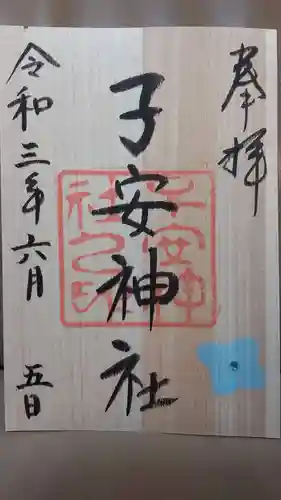 奉拝
子安神社
子安神
社之印
令和三年六月五日